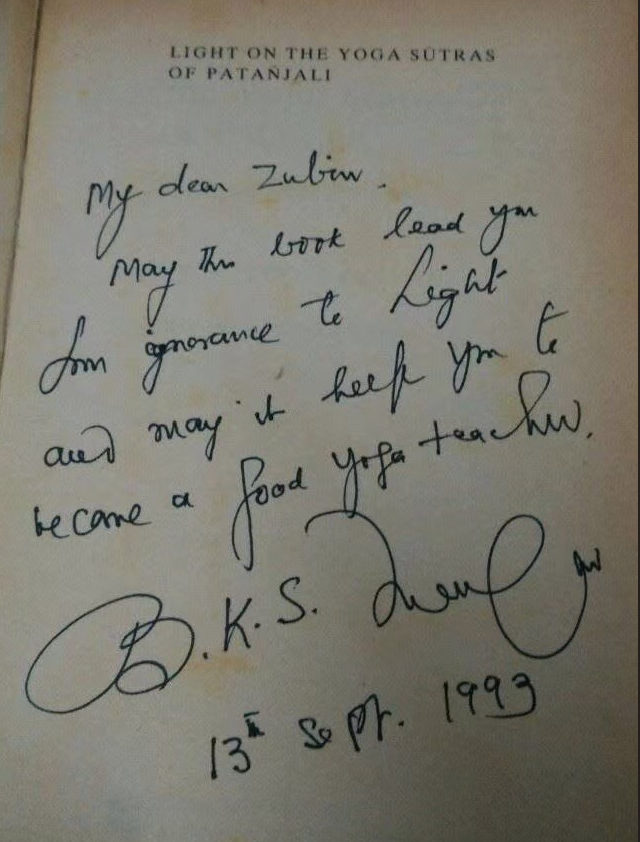 LIGHT ON THE YOGA SŪTRAS
OF PATAÑJALI
My dear Zubin.
May this book lead you
from ignorance to Light
and may it help you to
become a good yoga teacher.
B.K.S. Iyengar
13th Sept. 1993